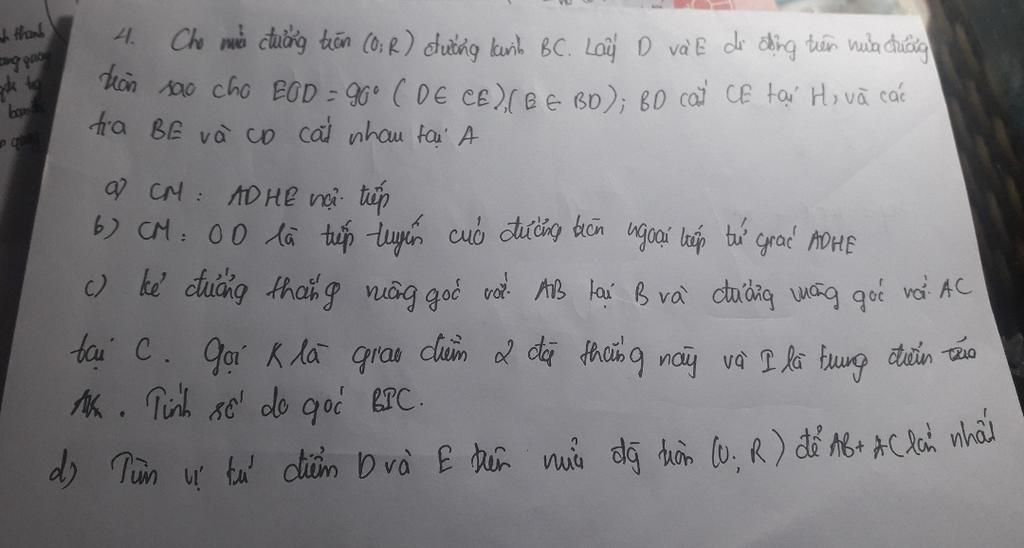 nh thanh
ang quay
4. Cho nửa đường tròn (O; R) đường kính BC. Lấy D và E di động trên nửa đường
tròn sao cho EOD = 90° (D ∈ CE), (E ∈ BD); BD cắt CE tại H, và các
tia BE và CD cắt nhau tại A
a) CM: ADHE nội tiếp
b) CM: OD là tiếp tuyến của đường tròn ngoại tiếp tứ giác ADHE
c) kẻ đường thẳng vuông góc với AB tại B và đường vuông góc với AC
tại C. Gọi K là giao điểm 2 đg thẳng này và I là trung điểm của
AK. Tính số đo góc BIC.
d) Tìm vị trí điểm D và E trên nửa đg tròn (O; R) để AB + AC lớn nhất